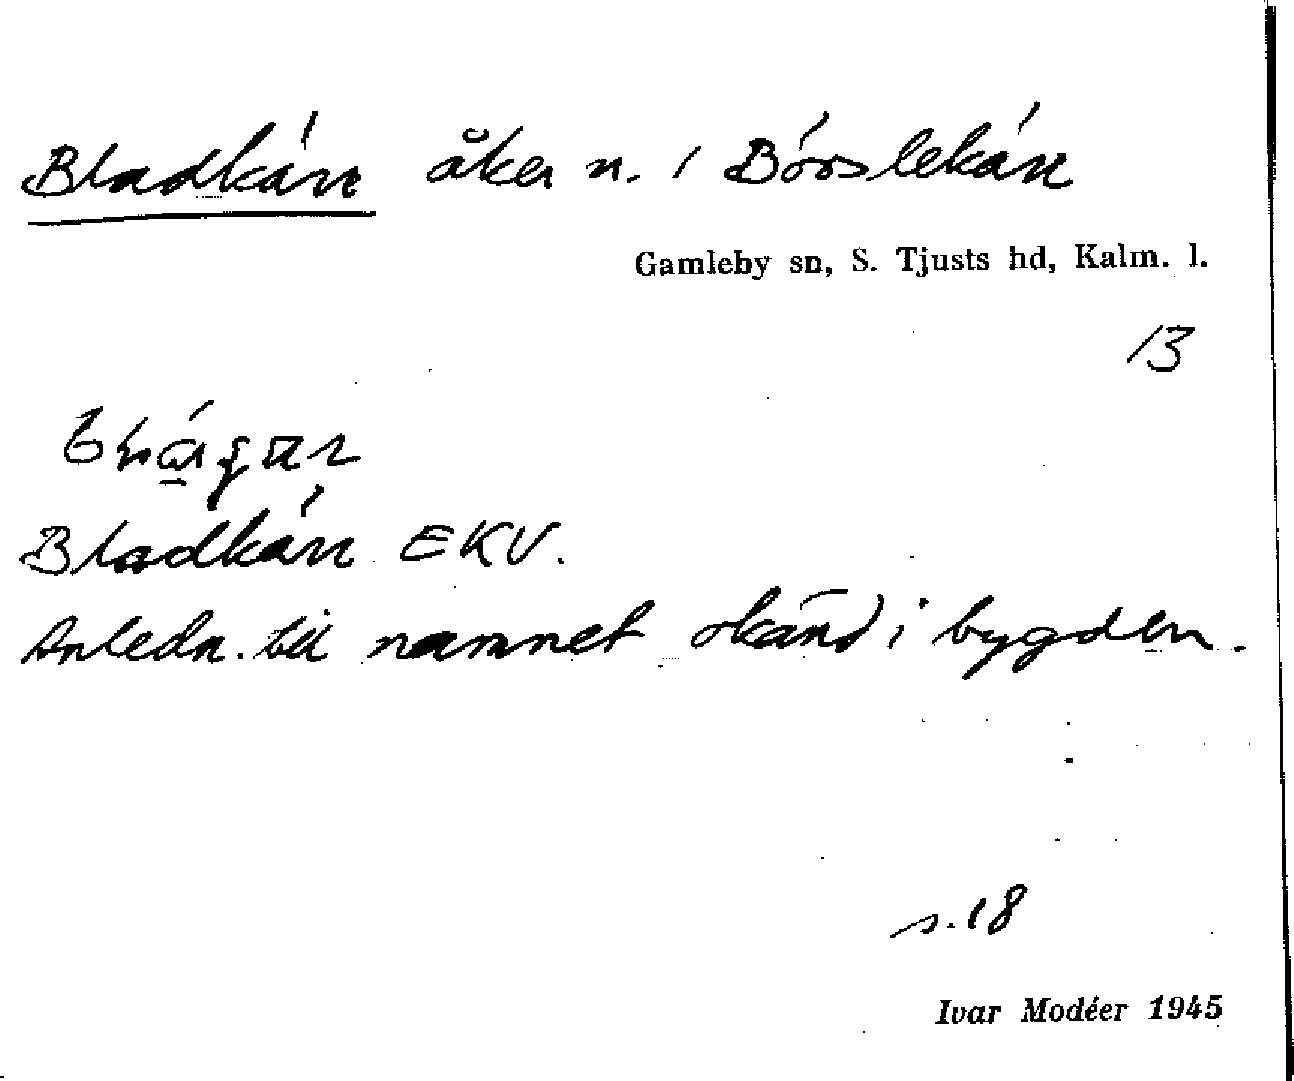 Bladkärr åker n. i Börslekärr
Gamleby sn, S. Tjusts hd, Kalm. l.
13
Bladkärr EKV.
Anledn. till namnet okänd i bygden.
s. 18
Ivar Modéer 1945